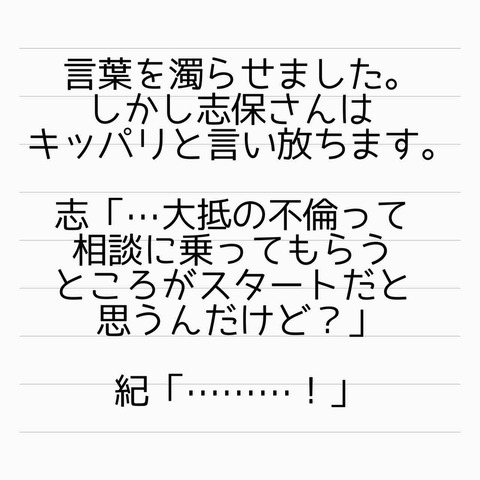 言葉を濁らせました。
しかし志保さんは
キッパリと言い放ちます。
志「…大抵の不倫って
相談に乗ってもらう
ところがスタートだと
思うんだけど？」
紀「………！」